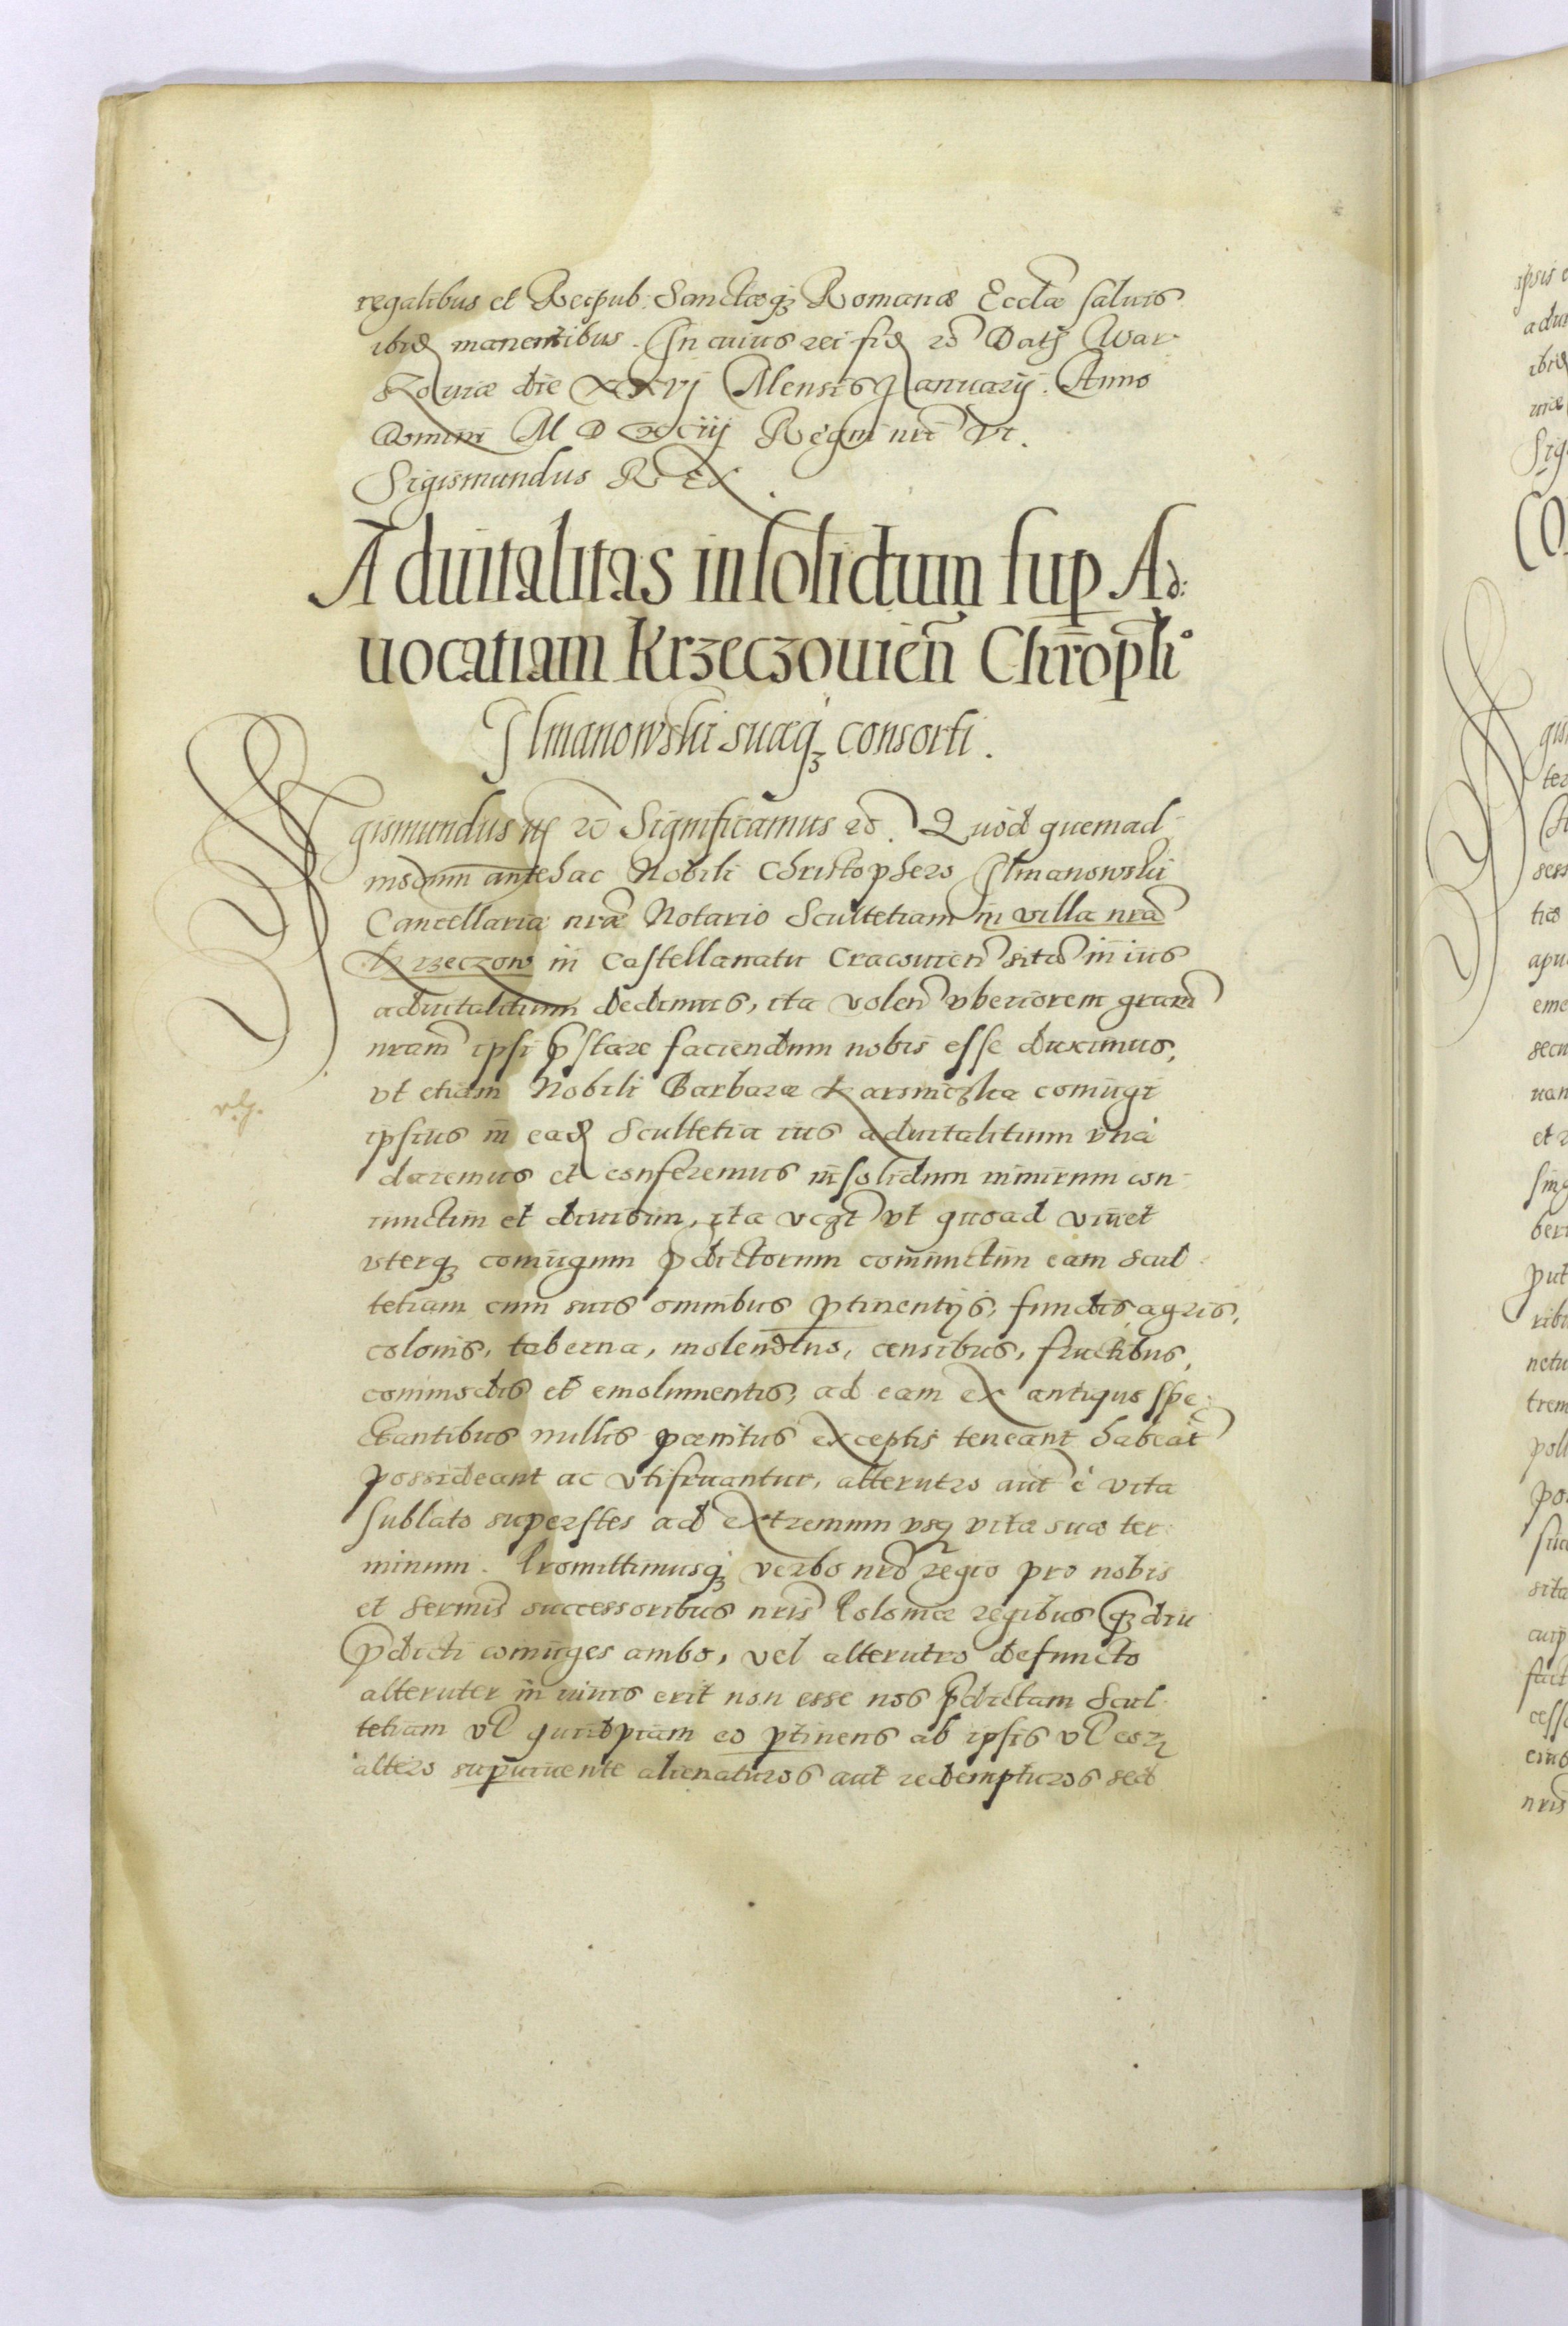 regalibus et Reipub: Sanctæq3 Romanæ Eccłæ saluis
ibid manentibus. In cuius rei fid ec Dat War-
szouiæ die XXVI Mensis Januarij. Anno
Domini M D XCIIJ Regni nri VI.
Sigismundus REX
Aduitalitas insolidum sup Ad:
uocatiam Krzeczouien̄ Chrophi°
Ilmanowski suæq3 consorti.
Sigismundus iij ec Significamus ec. Quod quemad-
modum antehac Nobili Christophero Ilmanowski
Cancellariæ nræ Notario Scultetiam in villa nrã
Krzeczow in Castellanatu Cracouien̄ sitã in ius
aduitalitium dedimus, ita volen̄ vberiorem gratiam̄
nram̄ ipsi p̄stare faciendum nobis esse duximus,
vt etiam Nobili Barbaræ Karsniczka coniugi
ipsius in ead Scultetia ius aduitalitium vna
daremus et conferemus in solidum nimirum con-
iunctim et diuisim, ita vcꝫt vt quoad viuet
vterq3 coniugum p̄dictorum coniunctim eam Scul-
tetiam cum suis omnibus ptinentijs, fundis, agris,
colonis, taberna, molendino, censibus, fructibus,
commodis et emolumentis, ad eam ex antiquo spe-
ctantibus nullis pœnitus exceptis teneant habeat̄
possideant ac vtifruantur, alterutro aut̄ è vita
sublato superstes ad extremum vsq vitæ suæ ter-
minum. Promittimusq3 verbo nrō regio pro nobis
et Sermis̄ successoribus nris̄ Poloniæ regibus q3diu
p̄dicti coniuges ambo, vel alterutro defuncto
alteruter in viuis erit non esse nos p̄dictam Scul-
tetiam vł quidpiam eo ptinens ab ipsis vł eoꝝ
altero supuiuente alienaturos aut redempturos sed